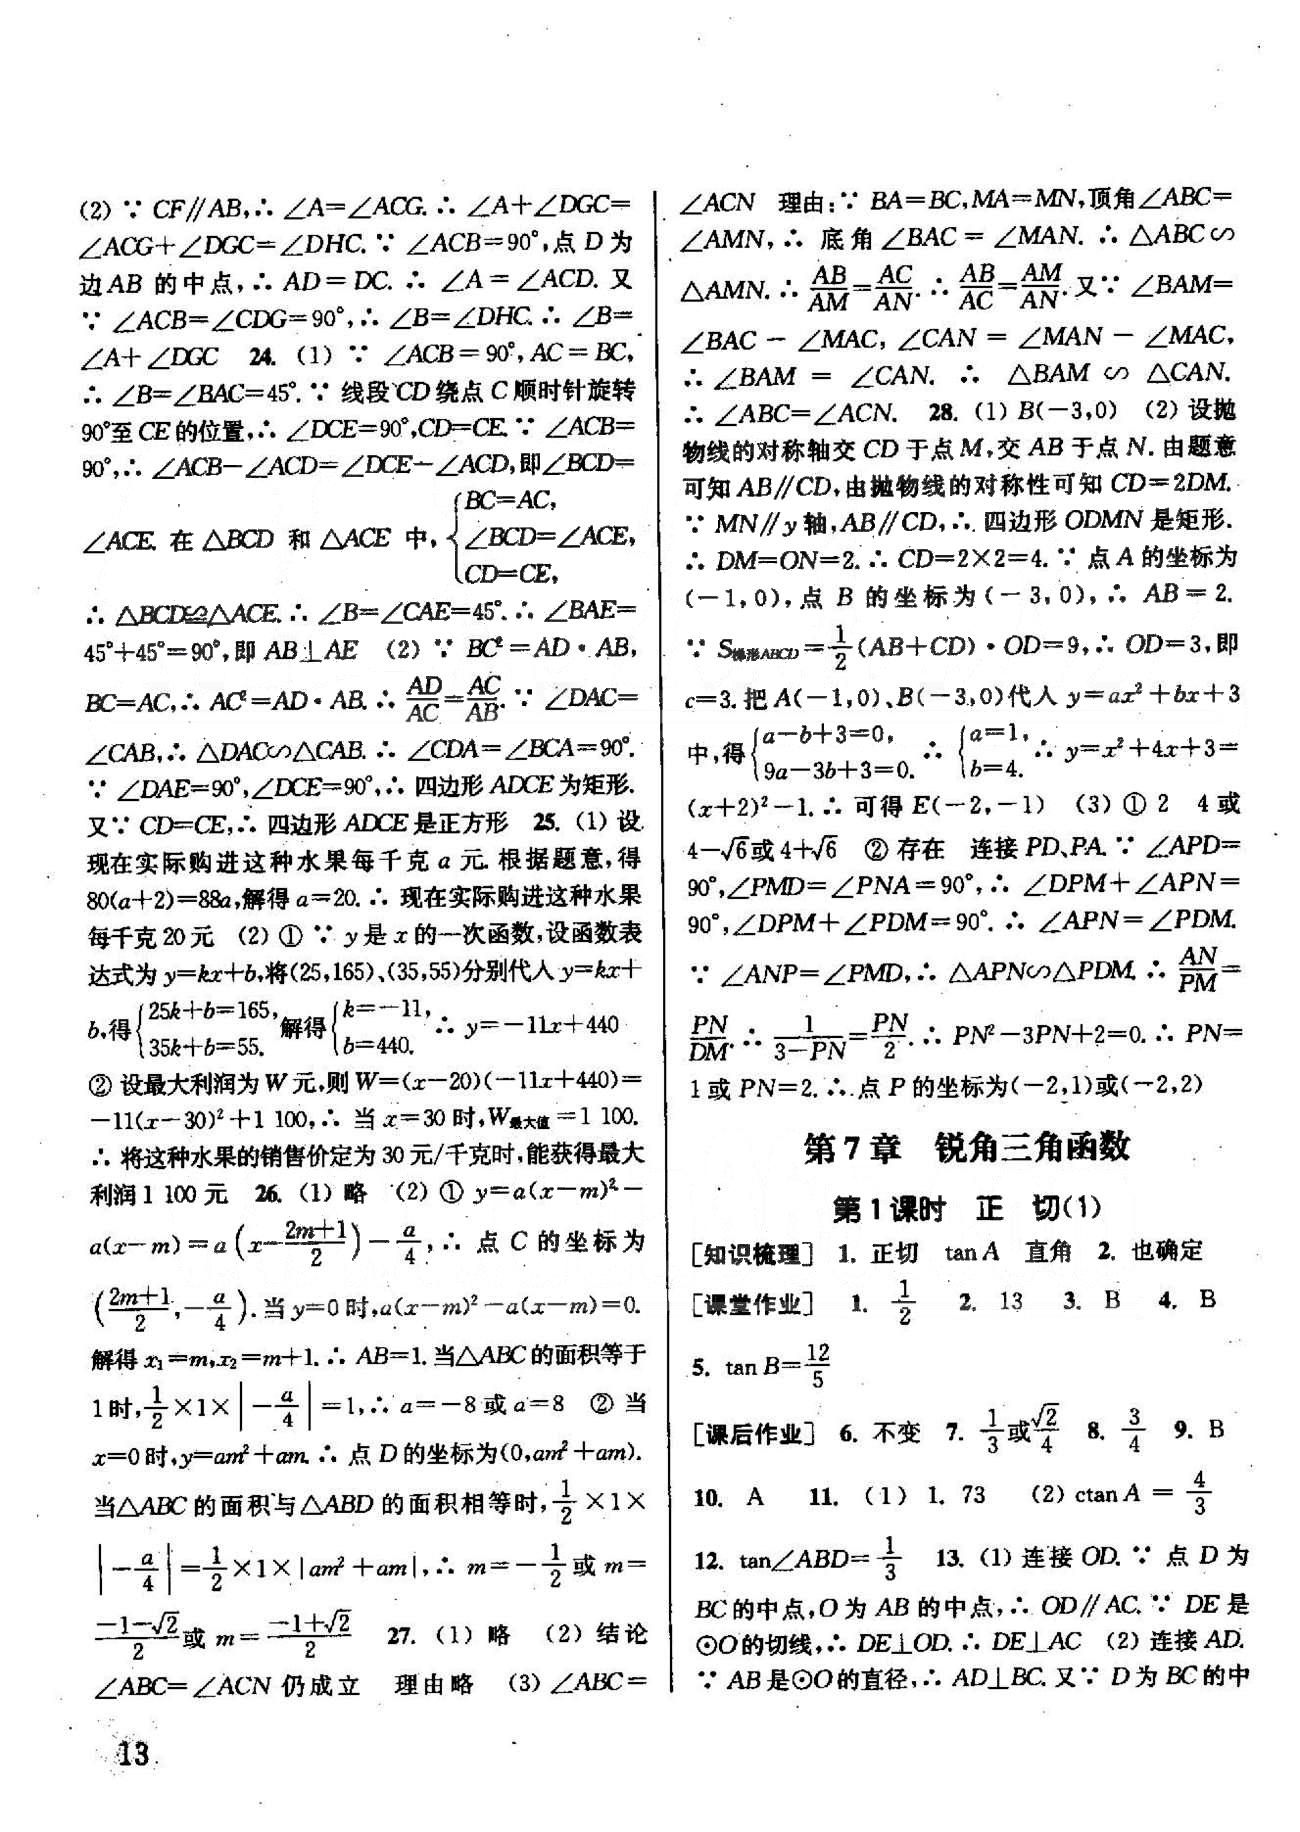 (2) ∵ CF∥AB,∴ ∠A=∠ACG. ∴ ∠A+∠DGC=
∠ACG+∠DGC=∠DHC. ∵ ∠ACB=90°,点 D 为
边 AB 的中点,∴ AD=DC. ∴ ∠A=∠ACD. 又
∵ ∠ACB=∠CDG=90°,∴ ∠B=∠DHC. ∴ ∠B=
∠A+∠DGC 24. (1) ∵ ∠ACB=90°,AC=BC,
∴ ∠B=∠BAC=45°. ∵ 线段 CD 绕点 C 顺时针旋转
90°至 CE 的位置,∴ ∠DCE=90°,CD=CE. ∵ ∠ACB=
90°,∴ ∠ACB-∠ACD=∠DCE-∠ACD,即∠BCD=
∠ACE. 在 △BCD 和 △ACE 中,{BC=AC, ∠BCD=∠ACE, CD=CE,
∴ △BCD≌△ACE. ∴ ∠B=∠CAE=45°. ∴ ∠BAE=
45°+45°=90°,即 AB⊥AE (2) ∵ BC²=AD·AB,
BC=AC,∴ AC²=AD·AB. ∴ AD/AC=AC/AB. ∵ ∠DAC=
∠CAB,∴ △DAC∽△CAB. ∴ ∠CDA=∠BCA=90°.
∵ ∠DAE=90°,∠DCE=90°,∴ 四边形 ADCE 为矩形.
又∵ CD=CE,∴ 四边形 ADCE 是正方形 25. (1) 设
现在实际购进这种水果每千克 a 元. 根据题意,得
80(a+2)=88a,解得 a=20. ∴ 现在实际购进这种水果
每千克 20 元 (2) ① ∵ y 是 x 的一次函数,设函数表
达式为 y=kx+b,将(25,165)、(35,55)分别代入 y=kx+
b,得{25k+b=165, 35k+b=55. 解得{k=-11, b=440. ∴ y=-11x+440
② 设最大利润为 W 元,则 W=(x-20)(-11x+440)=
-11(x-30)²+1 100,∴ 当 x=30 时,W最大值=1 100.
∴ 将这种水果的销售价定为 30 元/千克时,能获得最大
利润 1 100 元 26. (1) 略 (2) ① y=a(x-m)²-
a(x-m)=a(x-(2m+1)/2)-a/4,∴ 点 C 的坐标为
((2m+1)/2,-a/4). 当 y=0 时,a(x-m)²-a(x-m)=0.
解得 x₁=m,x₂=m+1. ∴ AB=1. 当△ABC 的面积等于
1 时,1/2×1×|-a/4|=1,∴ a=-8 或 a=8 ② 当
x=0 时,y=am²+am. ∴ 点 D 的坐标为(0,am²+am).
当△ABC 的面积与△ABD 的面积相等时,1/2×1×
|-a/4|=1/2×1×|am²+am|,∴ m=-1/2 或 m=
(-1-√2)/2 或 m=(-1+√2)/2 27. (1) 略 (2) 结论
∠ABC=∠ACN 仍成立 理由略 (3) ∠ABC=
∠ACN 理由:∵ BA=BC,MA=MN,顶角∠ABC=
∠AMN,∴ 底角∠BAC=∠MAN. ∴ △ABC∽
△AMN. ∴ AB/AM=AC/AN. ∴ AB/AC=AM/AN. 又∵ ∠BAM=
∠BAC-∠MAC,∠CAN=∠MAN-∠MAC,
∴ ∠BAM=∠CAN. ∴ △BAM∽△CAN.
∴ ∠ABC=∠ACN. 28. (1) B(-3,0) (2) 设抛
物线的对称轴交 CD 于点 M,交 AB 于点 N. 由题意
可知 AB∥CD,由抛物线的对称性可知 CD=2DM.
∵ MN∥y 轴,AB∥CD,∴ 四边形 ODMN 是矩形.
∴ DM=ON=2. ∴ CD=2×2=4. ∵ 点 A 的坐标为
(-1,0),点 B 的坐标为(-3,0),∴ AB=2.
∵ S梯形ABCD=1/2(AB+CD)·OD=9,∴ OD=3,即
c=3. 把 A(-1,0)、B(-3,0)代入 y=ax²+bx+3
中,得{a-b+3=0, 9a-3b+3=0. ∴ {a=1, b=4. ∴ y=x²+4x+3=
(x+2)²-1. ∴ 可得 E(-2,-1) (3) ① 2 4 或
4-√6或 4+√6 ② 存在 连接 PD、PA. ∵ ∠APD=
90°,∠PMD=∠PNA=90°,∴ ∠DPM+∠APN=
90°,∠DPM+∠PDM=90°. ∴ ∠APN=∠PDM.
∵ ∠ANP=∠PMD,∴ △APN∽△PDM. ∴ AN/PM=
PN/DM. ∴ 1/(3-PN)=PN/2. ∴ PN²-3PN+2=0. ∴ PN=
1 或 PN=2. ∴ 点 P 的坐标为(-2,1)或(-2,2)
第 7 章 锐角三角函数
第 1 课时 正 切(1)
[知识梳理] 1. 正切 tan A 直角 2. 也确定
[课堂作业] 1. 1/2 2. 13 3. B 4. B
5. tan B=12/5
[课后作业] 6. 不变 7. 1/3或√2/4 8. 3/4 9. B
10. A 11. (1) 1. 73 (2) ctan A=4/3
12. tan∠ABD=1/3 13. (1) 连接 OD. ∵ 点 D 为
BC 的中点,O 为 AB 的中点,∴ OD∥AC. ∵ DE 是
⊙O 的切线,∴ DE⊥OD. ∴ DE⊥AC (2) 连接 AD.
∵ AB 是⊙O 的直径,∴ AD⊥BC. 又∵ D 为 BC 的中
13